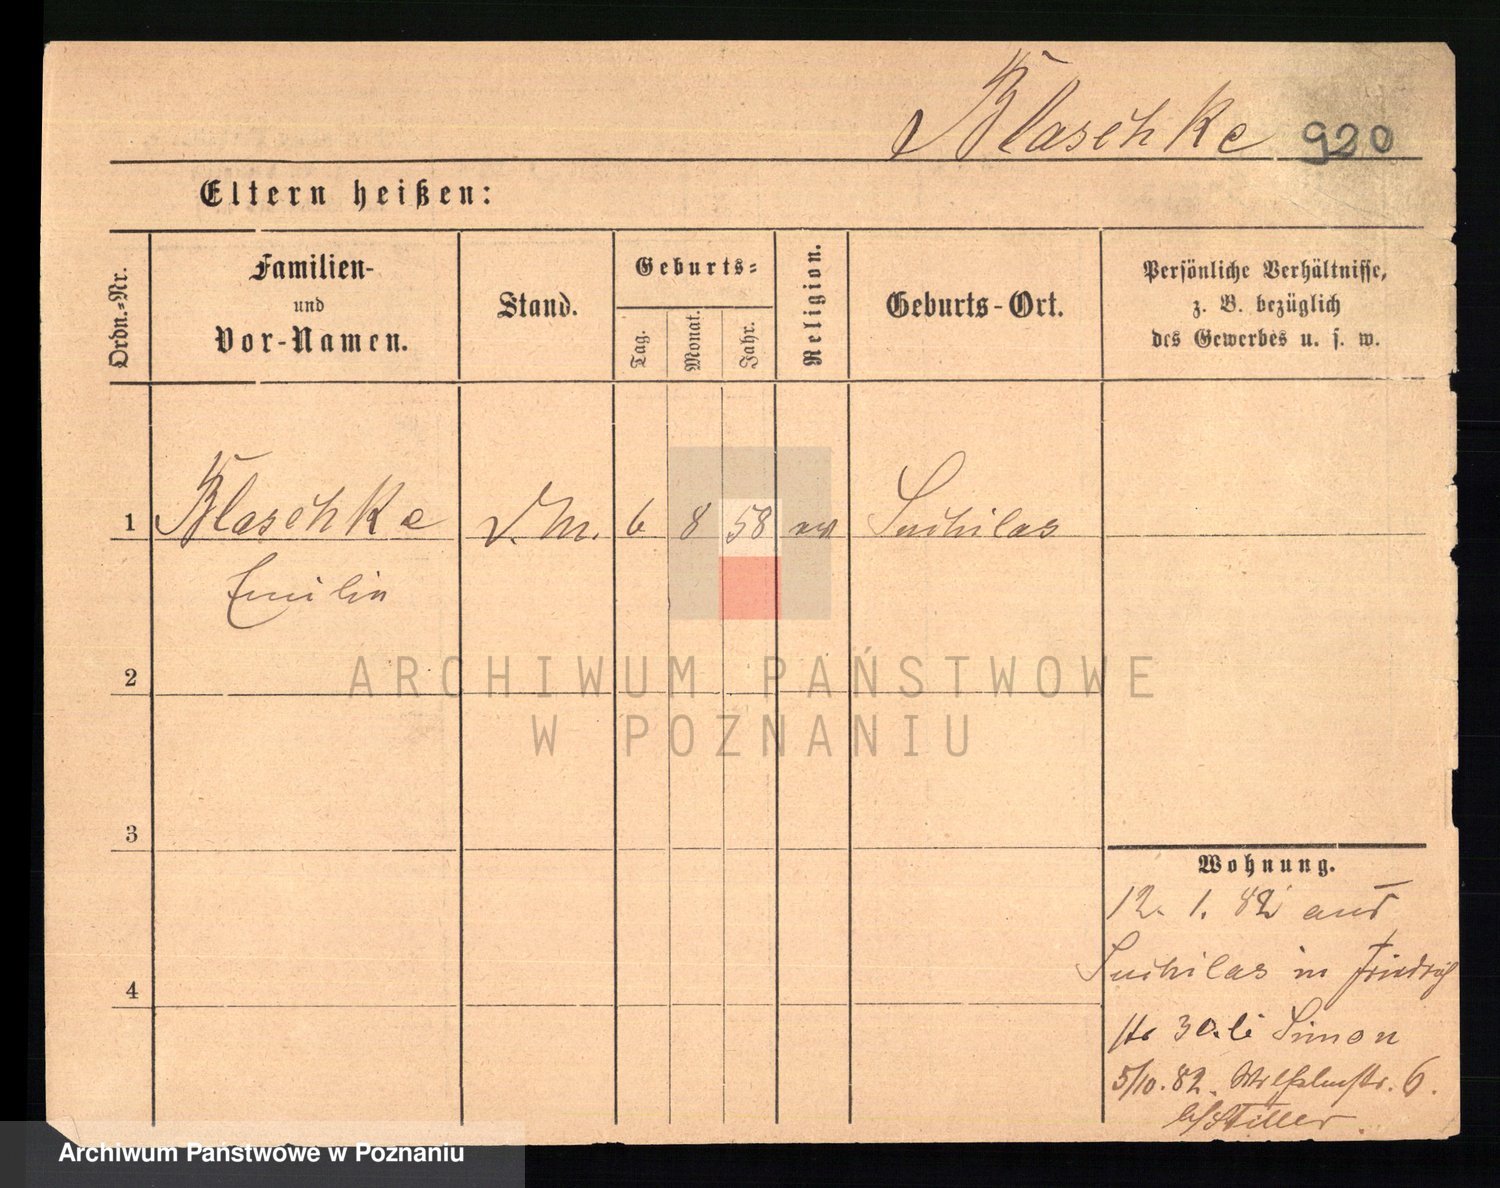 Blaschke 920
Eltern heißen:
Ordn.-Nr.
Familien-
und
Vor-Namen.
Stand.
Geburts-
Tag.
Monat.
Jahr.
Religion.
Geburts-Ort.
Persönliche Verhältnisse,
z. B. bezüglich
des Gewerbes u. s. w.
1 Blaschke D. M. 6 8 58 ev Suchilas
Emilie
2
3
4
Wohnung.
12. 1. 82 aus
Suchilas in Friedrich
str 30. bei Simon
5/10. 82. Wilhelmstr. 6.
b/Stiller.
ARCHIWUM PAŃSTWOWE
W POZNANIU
Archiwum Państwowe w Poznaniu